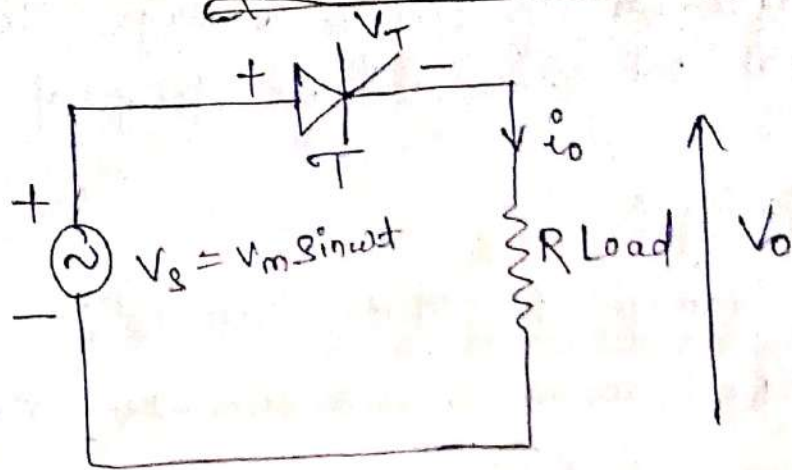 V_T
+ -
T
i_o
+
V_s = V_m sin ωt
-
R Load
V_o